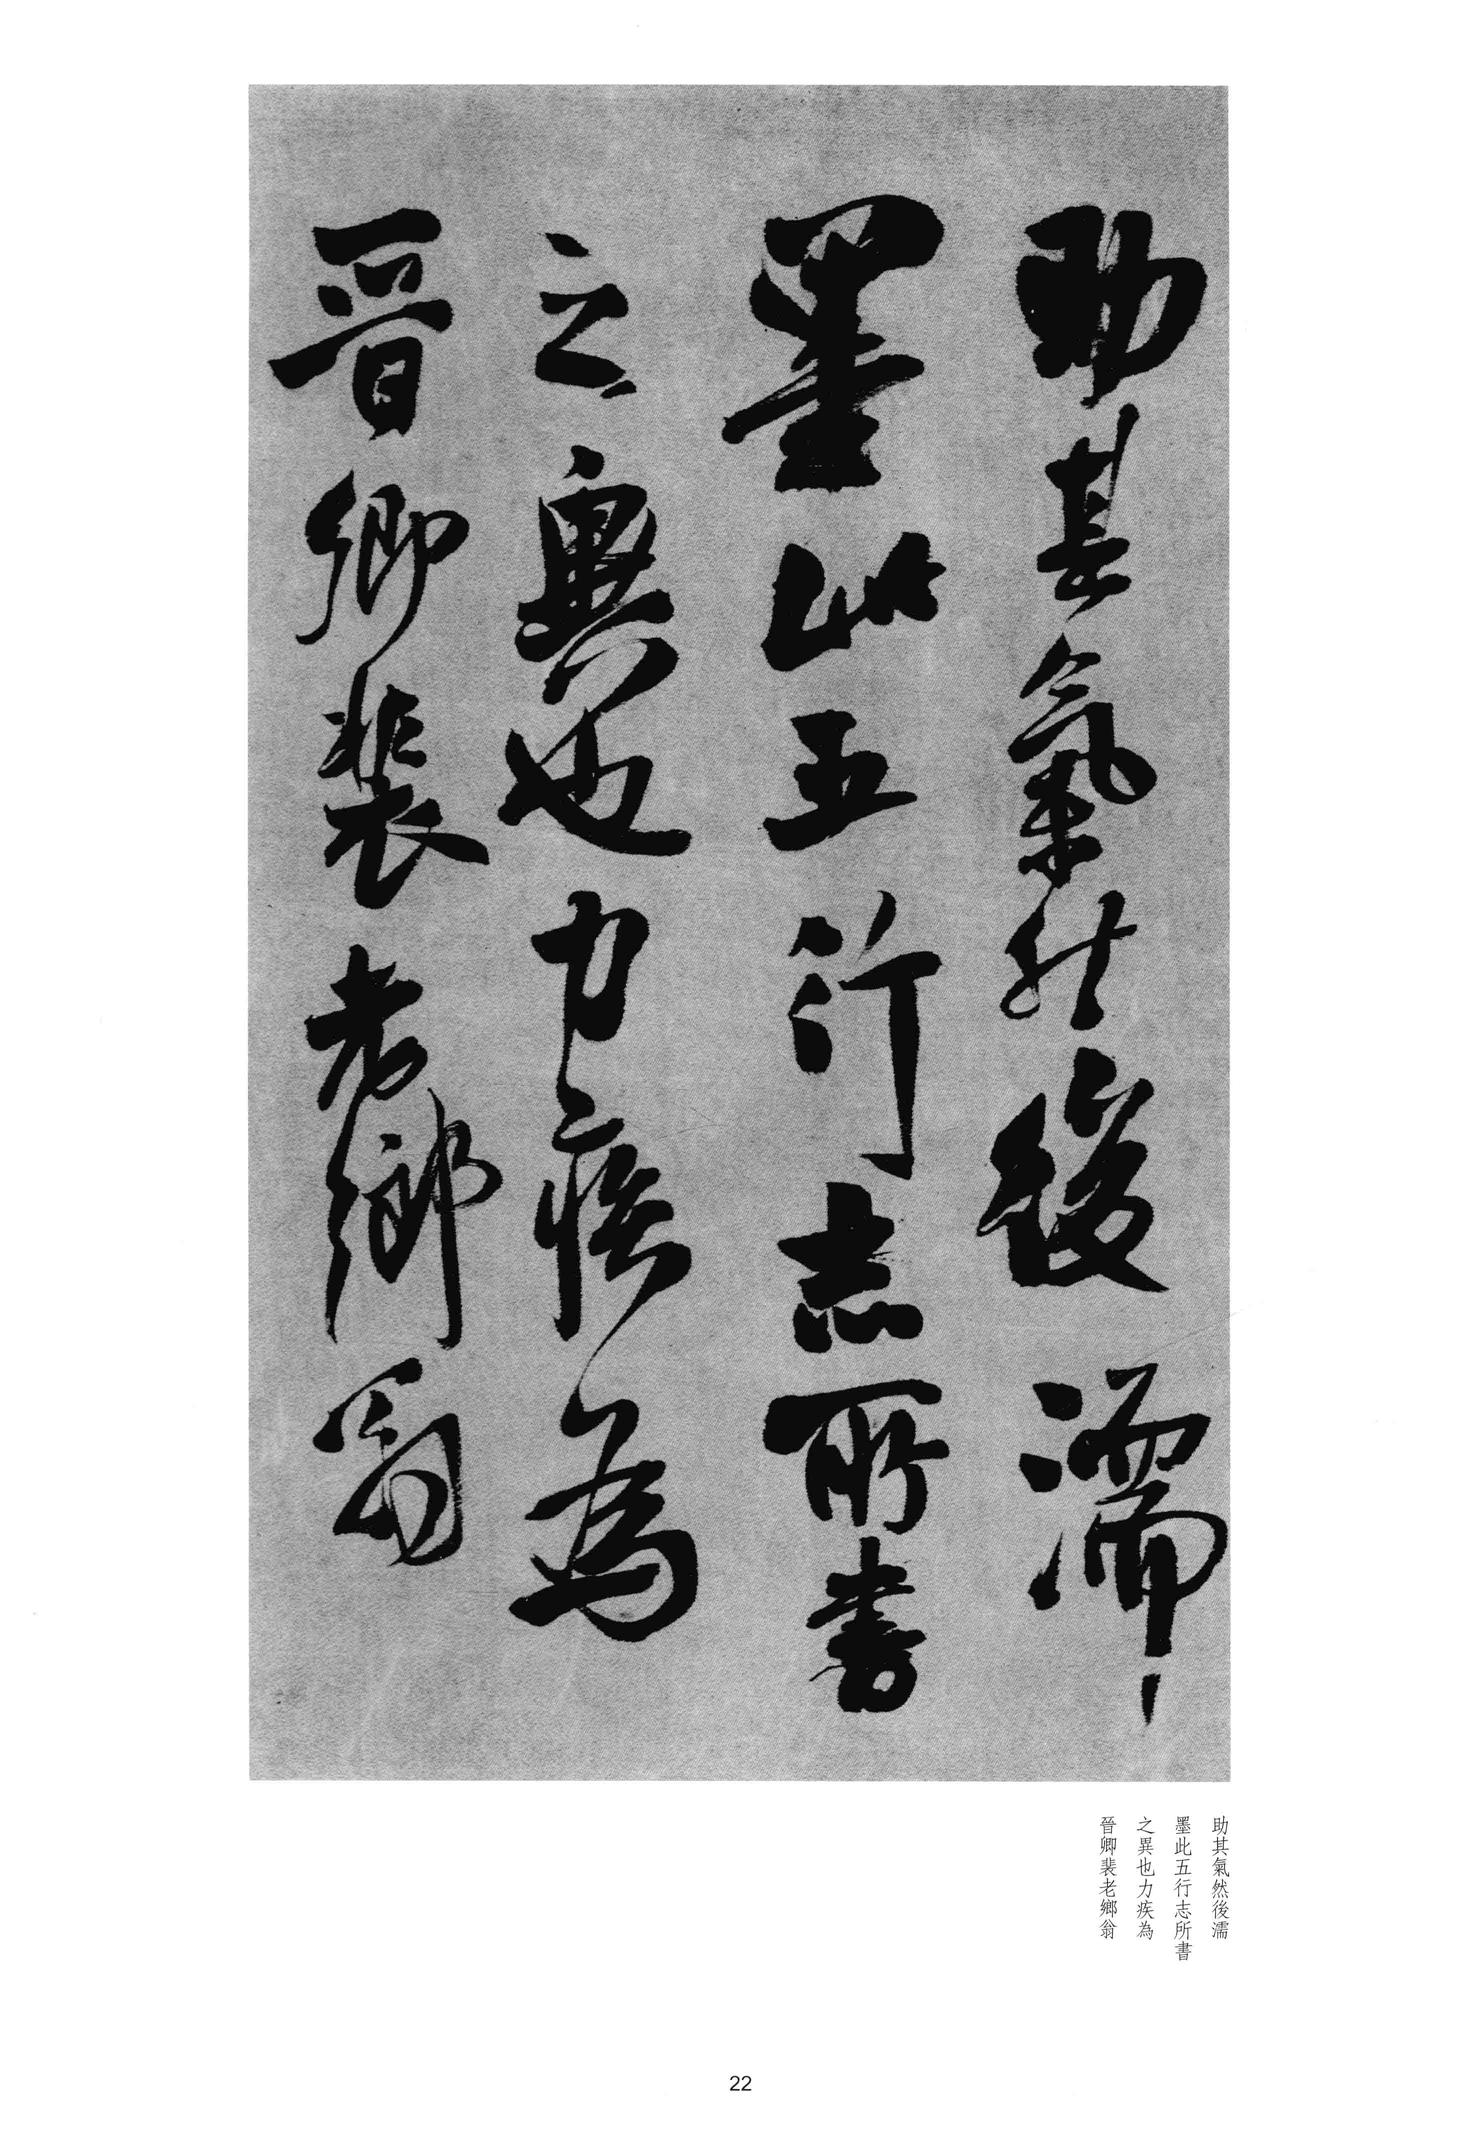 助其氣然後濡
墨此五行志所書
之異也力疾為
晉卿裴老鄉翁
助其氣然後濡
墨此五行志所書
之異也力疾為
晉卿裴老鄉翁
22